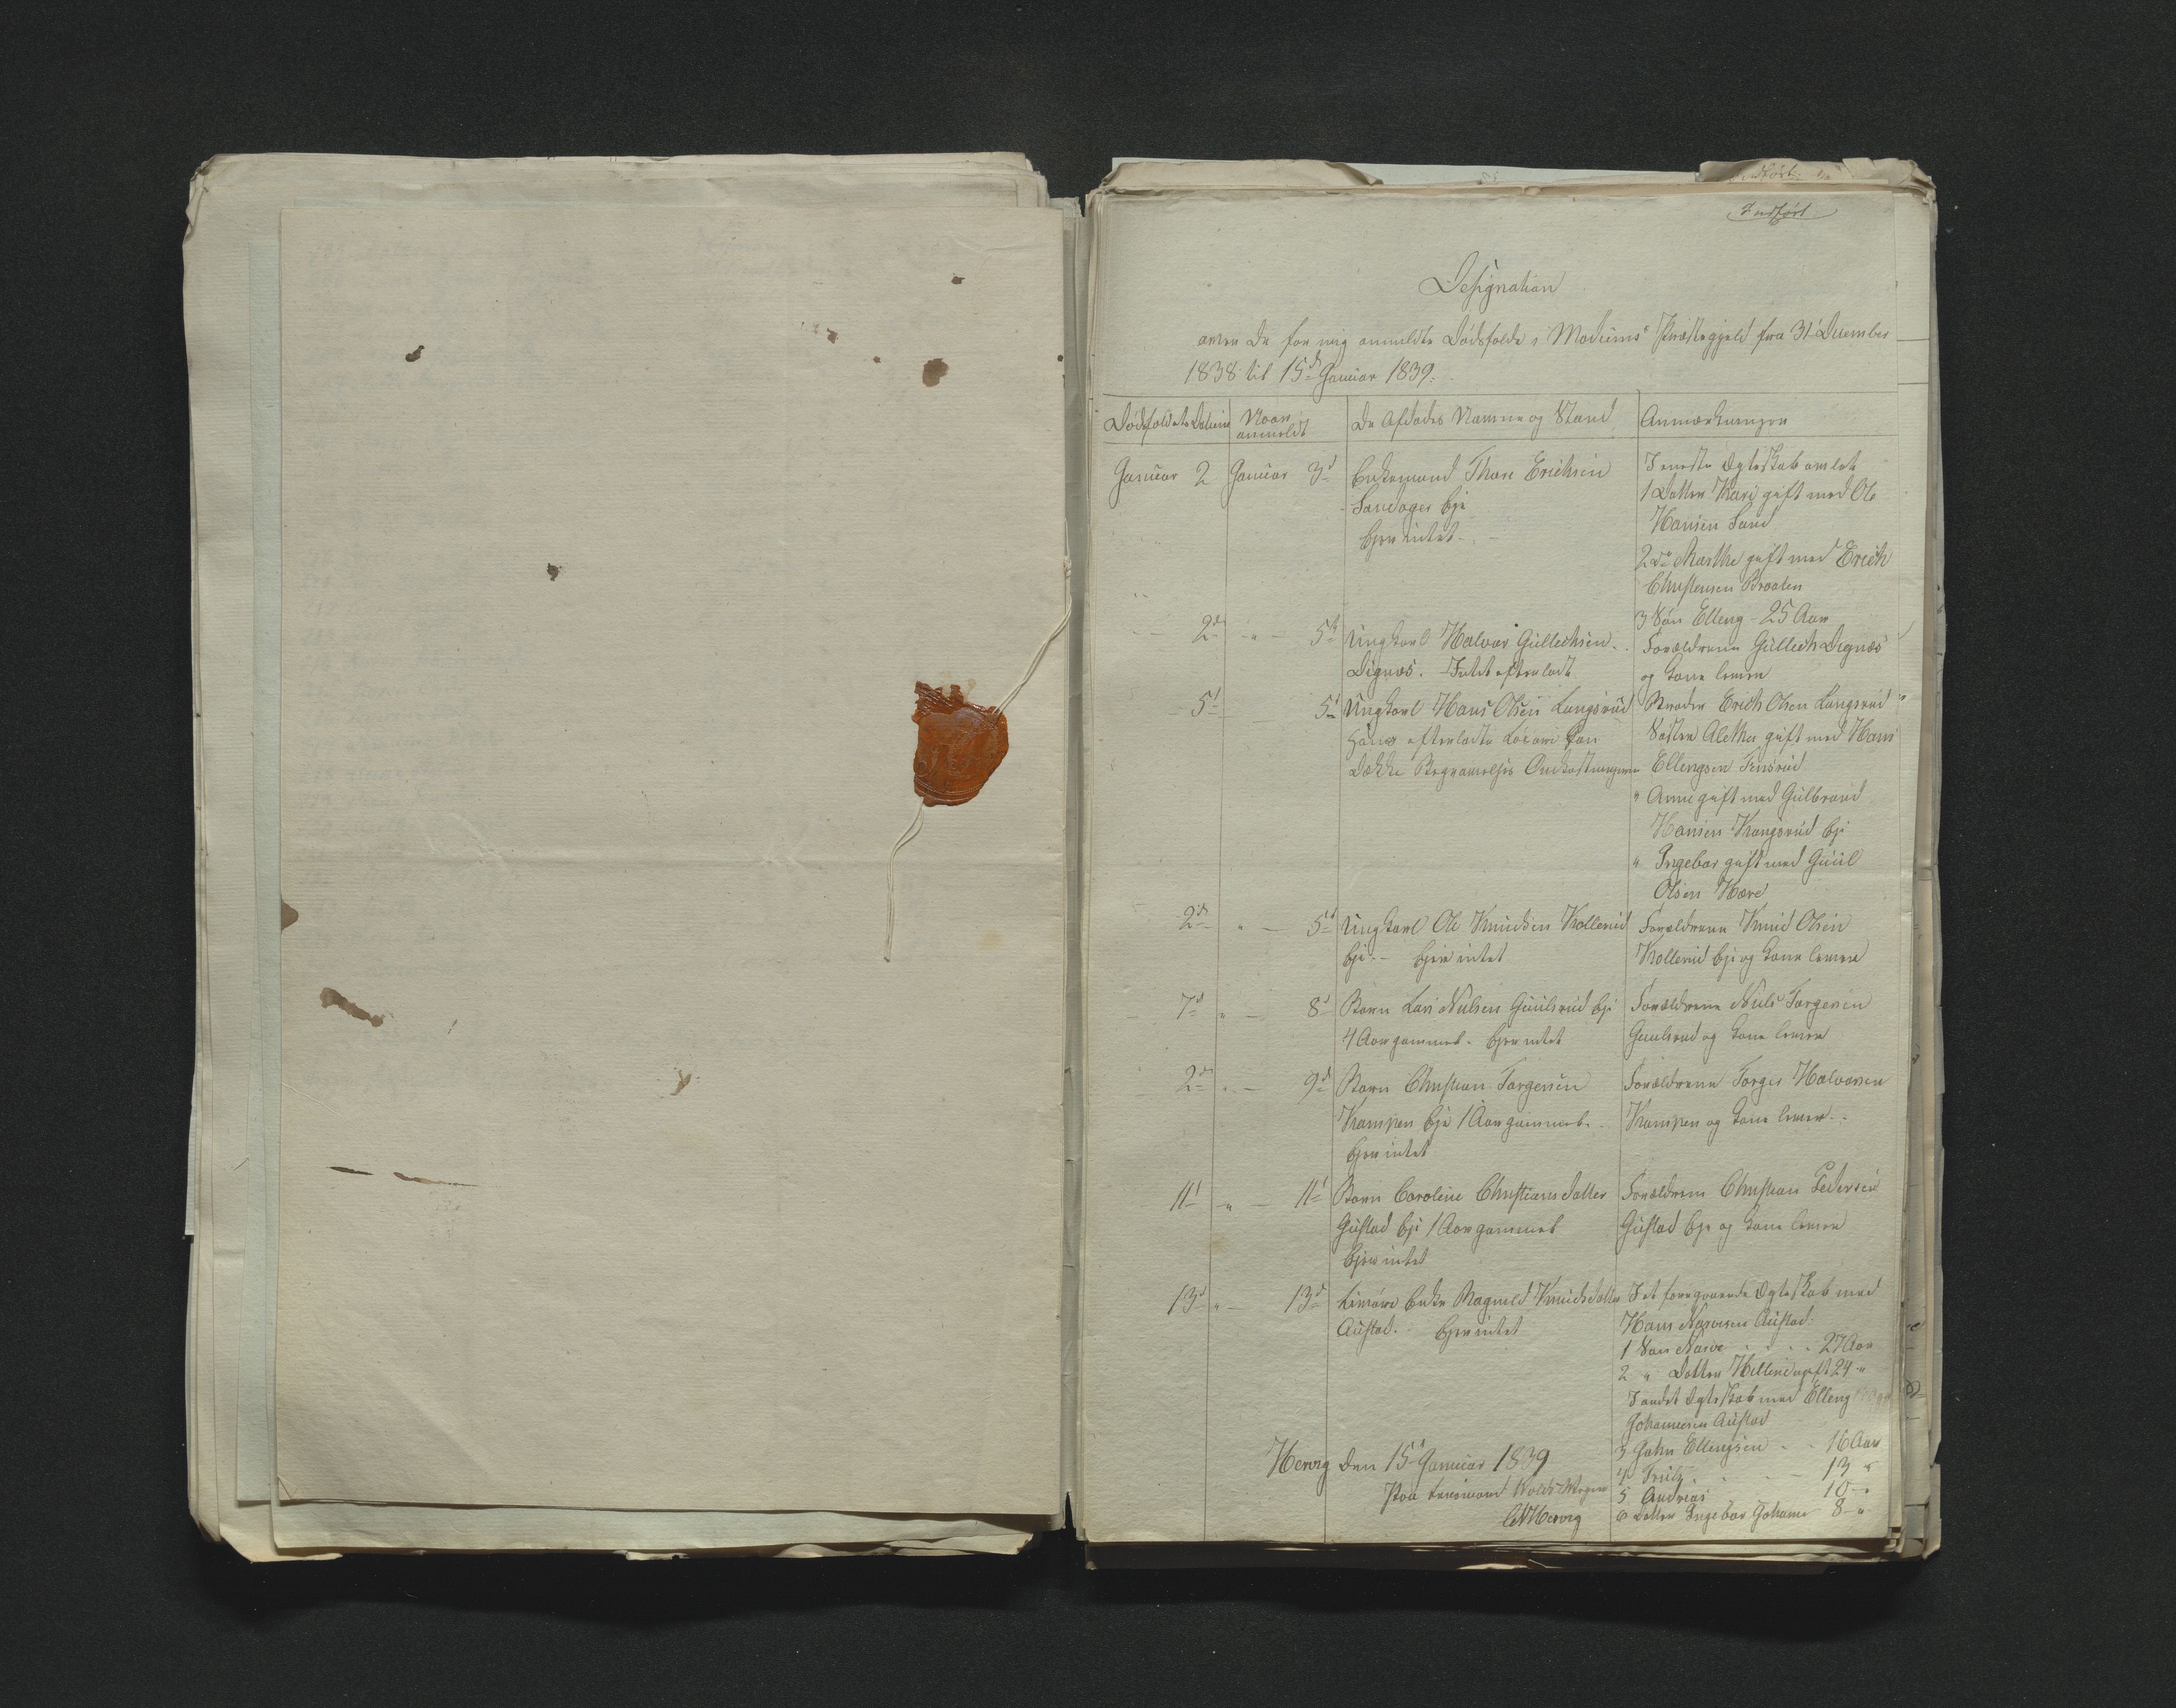 Indført
Designation
over de for mig anmeldte Dødsfalde i Modums Præstegjeld fra 31 December
1838 til 15d Januar 1839.
Dødsfaldets Datum
Naar anmeldt
De Afdødes Navne og Stand
Anmærkninger
Januar 2 Januar 3d Enkemand Thore Erichsen
Sandager Eje
Ejer intet
I eneste Ægteskab avlet
1 Datter Kari gift med Ole
Hansen Sand
2 do Marthe gift med Erich
Christensen Braaten
3 Søn Elleng - 25 Aar
2d " 5te Ungkarl Halvor Gullechsen
Dignæs. Intet efterladt
Forældrene Gullech Dignæs
og Kone lever
5d 5d Ungkarl Hans Olsen Langsrud
Hans efterladte kan
dække Begravelses Omkostningerne
Broder Erich Olsen Langsrud
Søster Alethe gift med Hans
Ellengsen
" Anne gift med Gulbrand
Hansen Kongsrud Eje
" Ingebor gift med Guul
Olsen Hære
2d " 5d Ungkarl Ole Knudsen Kollerud
Eje - Ejer intet
Forældrene Knud Olsen
Kollerud Eje og Kone lever
7d " 8d Barn Lars Nielsen Guulsrud Eje
4 Aar gammel. Ejer intet
Forældrene Niels Torgersen
Guulsrud og Kone lever
2d " 9d Barn Christian Torgersen
Kampen Eje 1 Aar gammel.
Ejer intet
Forældrene Torger Halvorsen
Kampen og Kone lever.
11d " 11d Barn Caroline Christiansdatter
Gustad Eje 1 Aar gammel
Ejer intet
Forældrene Christian Pedersen
Gustad Eje og Kone lever
13d " 13d Enke Ragnild Knudsdatter
Austad. Ejer intet
I et foregaaende Ægteskab med
Hans Narvesen Austad:
1 Søn Narve 27 Aar
2 " Datter ugift 24 "
I andet Ægteskab med Elleng
Johannesen Austad
3 John Ellengsen 16 Aar
4 13 "
5 Andreas 10 "
6 Datter Ingebor Johanne 8 "
Hervig den 15d Januar 1839
paa Lensmand Vegne
Hervig